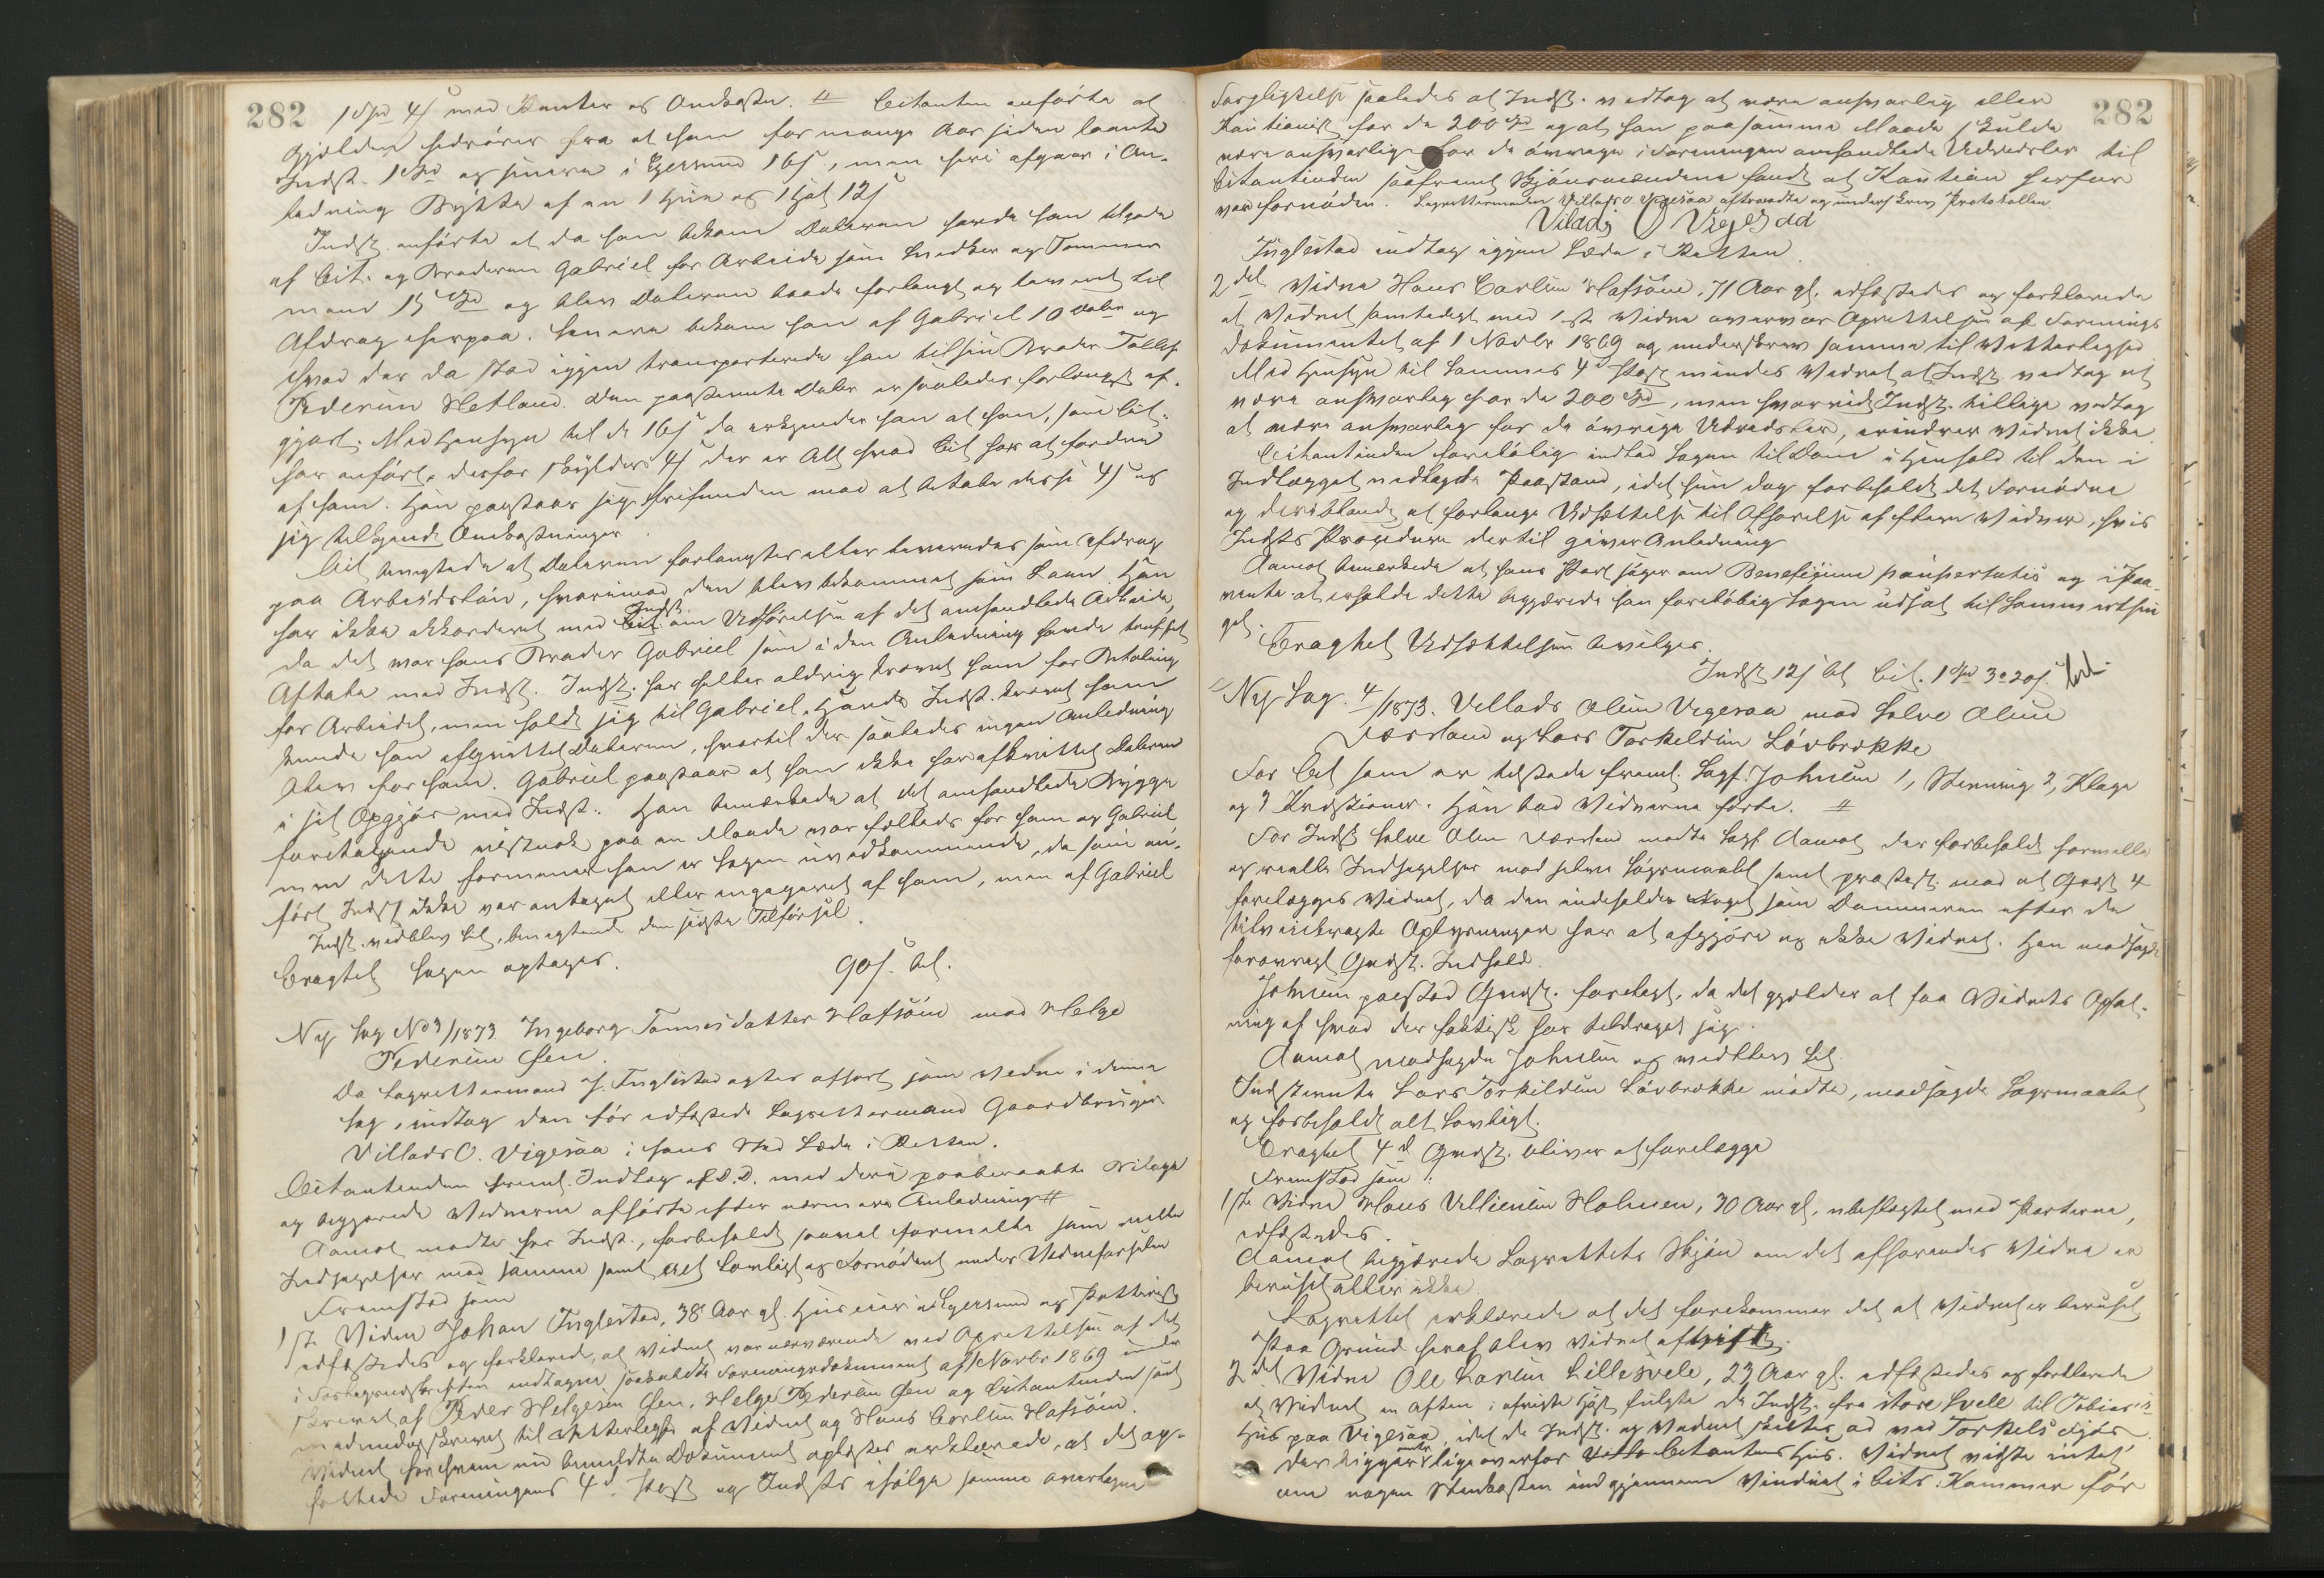 282
1 Spd 4 s med Renter og Omkostn. # Citanten anførte at
Gjælden hidrører fra at han for mange Aar siden laante
Indst. 1 Spd og senere i Egersund 16 s, men heri afgaar i An-
ledning Bytte af en 1 Hue og 1 Hat 12 s
Indst. anførte at da han bekom Daleren havde han tilgode
af Cit. og Broderen Gabriel for Arbeide som Snedker og Tømmer
mand 15 Spd og blev Daleren baade forlangt og leveret til
Afdrag herpaa. Senere bekom han af Gabriel 10 Daler og
hvad der da stod igjen transporterede han til sin Broder Tollef
Pedersen Hetland. Den paastevnte Daler er saaledes forlængst af-
gjort. Med Hensyn til de 16 s da erkjender han at han, som Cit.
har anført, derfor skylder 4 s der er Alt hvad Cit har at fordre
af ham. Han paastaar sig frifunden mod at betale disse 4 s og
sig tilkjendt Omkostninger.
Cit benegtede at Daleren forlangtes eller leveredes som Afdrag
paa Arbeidsløn, hvorimod den blev bekommet som Laan. Han
har ikke akkorderet med Indst. om Udførelsen af det omhandlede Arbeide,
da det var hans Broder Gabriel som i den Anledning havde truffet
Aftale med Indst. Indst. har heller aldrig krævet ham for Betaling
for Arbeidet, men holdt sig til Gabriel. Havde Indst. krævet ham
kunde han afkvittet Daleren, hvortil der saaledes ingen Anledning
blev for ham. Gabriel paastaar at han ikke har afkvittet Daleren
i sit Opgjør med Indst. Han bemærkede at det omhandlede Bygge
foretagende vistnok paa en Maade var fælleds for ham og Gabriel
men dette formener han er Sagen uvedkommende, da som an-
ført Indst ikke var antaget eller engageret af ham, men af Gabriel
Indst. vedblev Sit, benegtende den sidste Tilførsel.
Eragtet Sagen optages. 90 s. bet.
Ny Sag No 3/1873 Ingeborg Tønnesdatter Hafsøen mod Helge
Pedersen Øen.
Da Lagrettemand J. Inglestad agtes afhørt som Vidne i denne
Sag, indtog den før edfæstede Lagrettemand Gaardbruger
Villads O. Vigesaa i hans Sted Sæde i Retten.
Citantinden freml. Indlæg af D.D. med deri paaberaabte Bilage
og begjærede Vidnerne afhørte efter nærmere Anledning #
Aamot mødte for Indst., forbeholdt saavel formelle som reelle
Indsigelser mod samme samt alt Lovligt og Fornødent under Vidneførselen
Fremstod som
1ste Vidne Johan Inglestad, 38 Aar gl. Huseier i Egersund og
edfæstedes og forklarede, at Vidnet var nærværende ved Oprettelsen af det
i indtagne saakaldte Foreningsdokument af 1 Novbr 1869 under
skrevet af Peder Helgesen Øen, Helge Pedersen Øen og Citantinden samt
medunderskrevet til Vitterlighed af Vidnet og Hans Carlsen Hafsøen.
Vidnet for hvem nu bemeldte Dokument oplæstes erklærede, at det op-
fattede Foreningens 4d. Post og Indsts ifølge samme overtagne
282
Forpligtelse saaledes at Indst. vedtog at være ansvarlig eller
Kautionist for de 200 Spd og at han paa samme Maade skulde
være ansvarlig for de øvrige i Foreningen omhandlede Udredsler til
Citantinden saafremt Skjønsmændene fandt at Kaution herfor
var fornøden. Lagrettemanden Villads O. Vigesaa aftraadte og underskrev Protokollen.
Viladis O Viges aa
Inglestad indtog igjen Sæde i Retten.
2det Vidne Hans Carlsen Hafsøen, 71 Aar gl. edfæstedes og forklarede
at Vidnet samtidigt med 1ste Vidne overvar Oprettelsen af Forenings
dokumentet af 1 Novbr 1869 og underskrev samme til Vitterlighed
Med Hensyn til Sammes 4d Post mindes Vidnet at Indst. vedtog at
være ansvarlig for de 200 Spd, men hvorvidt Indst. tillige vedtog
at være ansvarlig for de øvrige Udredsler, erindrer Vidnet ikke.
Citantinden foreløbig indlod Sagen til Dom i Henhold til den i
Indlægget nedlagte Paastand, idet hun dog forbeholdt det Fornødne
og deriblandt at forlange Udsættelse til Afhørelse af flere Vidner, hvis
Indsts Procedure dertil giver Anledning
Aamot bemærkede at hans Part søger om Beneficium paupertatis og i Paa-
vente at erholde dette begjærede han foreløbig Sagen udsat til Sommertin
get.
Eragtet Udsættelsen bevilges.
Indst 12 s bt Cit. 1 Spd 3 o 20 s. bet.
Ny Sag. 4/1873. Villads Olsen Vigesaa mod Salve Olsen
Værsland og Lars Torkeldsen Løvbrekke
For Cit som er tilstede freml. Sagf. Johnsen 1, Stevning 2, Klage
og 3 Kvæstioner. Han bad Vidnerne førte. #
For Indst Salve Olsen Værsland mødte Sagf Aamot der forbeholdt formelle
og reelle Indsigelser mod selve Søgsmaalet samt protest. mod at Qvæst 4
forelægges Vidnet, da den indeholder Noget som Dommeren efter de
tilveiebragte Oplysninger har at afgjøre og ikke Vidnet. Han modsagde
forøvrigt Qvæst. Indhold.
Johnsen paastod Qvæst. forelagt, da det gjælder at faa Vidnets Opfat-
ning af hvad der faktisk har tildraget sig.
Aamot modsagde Johnsen og vedblev Sit.
Indstevnte Lars Torkildsen Løvbrække mødte, modsagde Søgsmaalet
og forbeholdt alt Lovligt.
Eragtet 4d Qvæst. bliver at forelægge
Fremstod som:
1ste Vidne Hans Villiemsen Holmen, 30 Aar gl, ubeslægtet med Parterne,
edfæstedes.
Aamot begjærede Lagrettets Skjøn om det afhørendes Vidne er
beruset eller ikke.
Lagrettet erklærede at det forekommer det at Vidnet er beruset
Paa Grund heraf blev Vidnet afvist.
2det Vidne Ole Larsen Lillesvele, 23 Aar gl. edfæstedes og forklarede
at Vidnet en Aften i afvigte Høst fulgte de Indst. fra Store Svele til Tobias's
Hus paa Vigesaa, idet de Indst. og Vidnet skiltes ad ved Torkels Fjøs
der ligger lige overfor Citantens Hus. Vidnet vidste intet
om nogen Stenkasten ind gjennem Vinduet i Cits Kammer før